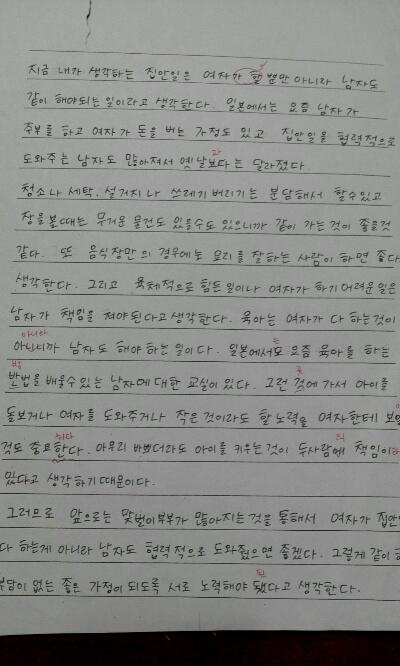 지금 내가 생각하는 집안일은 여자가 할 뿐만 아니라 남자도
같이 해야되는 일이라고 생각한다. 일본에서는 요즘 남자가
주부를 하고 여자가 돈을 버는 가정도 있고 집안일을 협력적으로
도와주는 남자도 많아져서 옛날보다는 달라졌다
과
청소나 세탁, 설거지나 쓰레기 버리기는 분담해서 할수있고
장을 볼때는 무거운 물건도 있을수도 있으니까 같이 가는것이 좋을것
같다. 또 음식장만의 경우에는 요리를 잘하는 사람이 하면 좋다
생각한다. 그리고 육체적으로 힘든 일이나 여자가 하기 어려운일은
남자가 책임을 져야된다고 생각한다. 육아는 여자가 다 하는것이
아니라
아니니까 남자도 해야 하는 일이다. 일본에서도 요즘 육아를 하는
는
방
반법을 배울수 있는 남자에 대한 교실이 있다. 그런 것에 가서 아이를
곳
돌보거나 여자를 도와주거나 작은 것이라도 할 노력을 여자한테 보일
것도 중요한다. 아무리 바쁘더라도 아이를 키우는것이 두사람에 책임이
하다
의
있다고 생각하기 때문이다.
그러므로 앞으로는 맞벌이부부가 많아지는 것을 통해서 여자가 집안
다 하는게 아니라 남자도 협력적으로 도와줬으면 좋겠다. 그렇게 같이
부담이 없는 좋은 가정이 되도록 서로 노력해야 됐다고 생각한다.
된